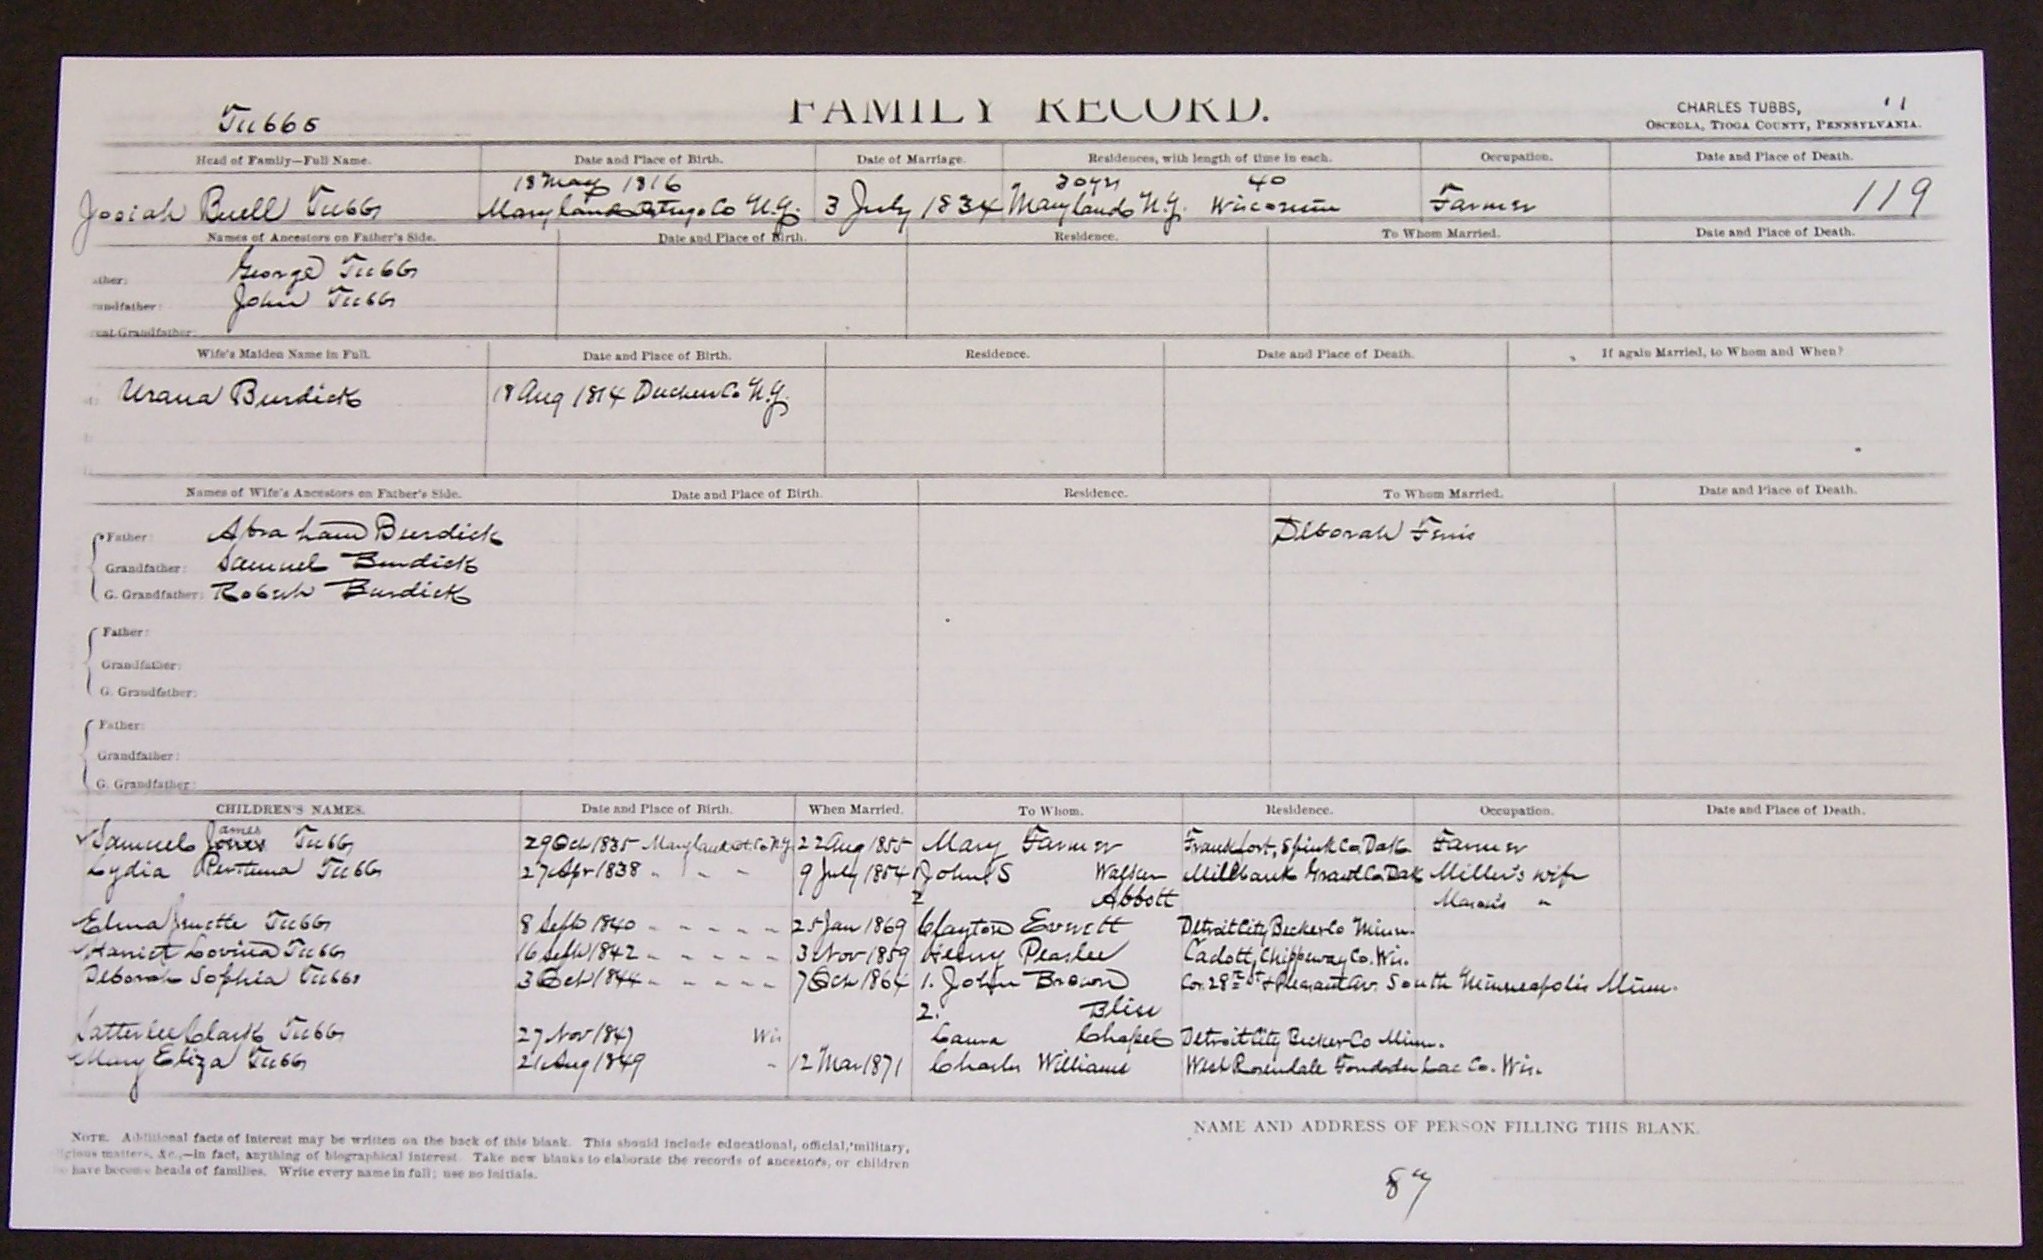 Tubbs
FAMILY RECORD.
CHARLES TUBBS,
11
OSCEOLA, TIOGA COUNTY, PENNSYLVANIA.
Head of Family—Full Name. Date and Place of Birth. Date of Marriage. Residences, with length of time in each. Occupation. Date and Place of Death.
18 May 1816 20 yrs 40
Josiah Buell Tubbs Maryland Otsego Co N.Y. 3 July 1834 Maryland N.Y. Wisconsin Farmer 119
Names of Ancestors on Father's Side. Date and Place of Birth. Residence. To Whom Married. Date and Place of Death.
ather: George Tubbs
andfather: John Tubbs
eat-Grandfather:
Wife's Maiden Name in Full. Date and Place of Birth. Residence. Date and Place of Death. If again Married, to Whom and When?
Urana Burdick 18 Aug 1814 Co N.Y.
Names of Wife's Ancestors on Father's Side. Date and Place of Birth. Residence. To Whom Married. Date and Place of Death.
Father: Abraham Burdick Deborah
Grandfather: Samuel Burdick
G. Grandfather: Robert Burdick
Father:
Grandfather:
G. Grandfather:
Father:
Grandfather:
G. Grandfather:
CHILDREN'S NAMES. Date and Place of Birth. When Married. To Whom. Residence. Occupation. Date and Place of Death.
James
Samuel Jones Tubbs 29 Oct 1835 Maryland Ot. Co N.Y. 22 Aug 1855 Mary Farmer Frankfort, Spink Co. Dak Farmer
Lydia Tubbs 27 Apr 1838 " " " 9 July 1854 1 John S Walker Millbank Grant Co. Dak Miller's wife
2 Abbott Mason's "
Elma Tubbs 8 Sept 1840 - - - - - 25 Jan 1869 Clayton Everett Detroit City Becker Co Minn.
Harriet Lovina Tubbs 16 Sept 1842 - - - - - 3 Nov 1859 Henry Peaslee Cadott, Chippeway Co. Wis.
Deborah Sophia Tubbs 3 Oct 1844 - - - - - 7 Oct 1864 1. John Brown Cor. 28th St & Pleasant Av. South Minneapolis Minn.
2. Bliss
Satterlee Clark Tubbs 27 Nov 1847 Wis Laura Chapel Detroit City Becker Co Minn.
Mary Eliza Tubbs 21 Aug 1849 " 12 Mar 1871 Charles Williams West Rosendale Fond du Lac Co. Wis.
NOTE. Additional facts of interest may be written on the back of this blank. This should include educational, official, military,
igious matters, &c.,—in fact, anything of biographical interest. Take new blanks to elaborate the records of ancestors, or children
have become heads of families. Write every name in full; use no initials.
NAME AND ADDRESS OF PERSON FILLING THIS BLANK.
87